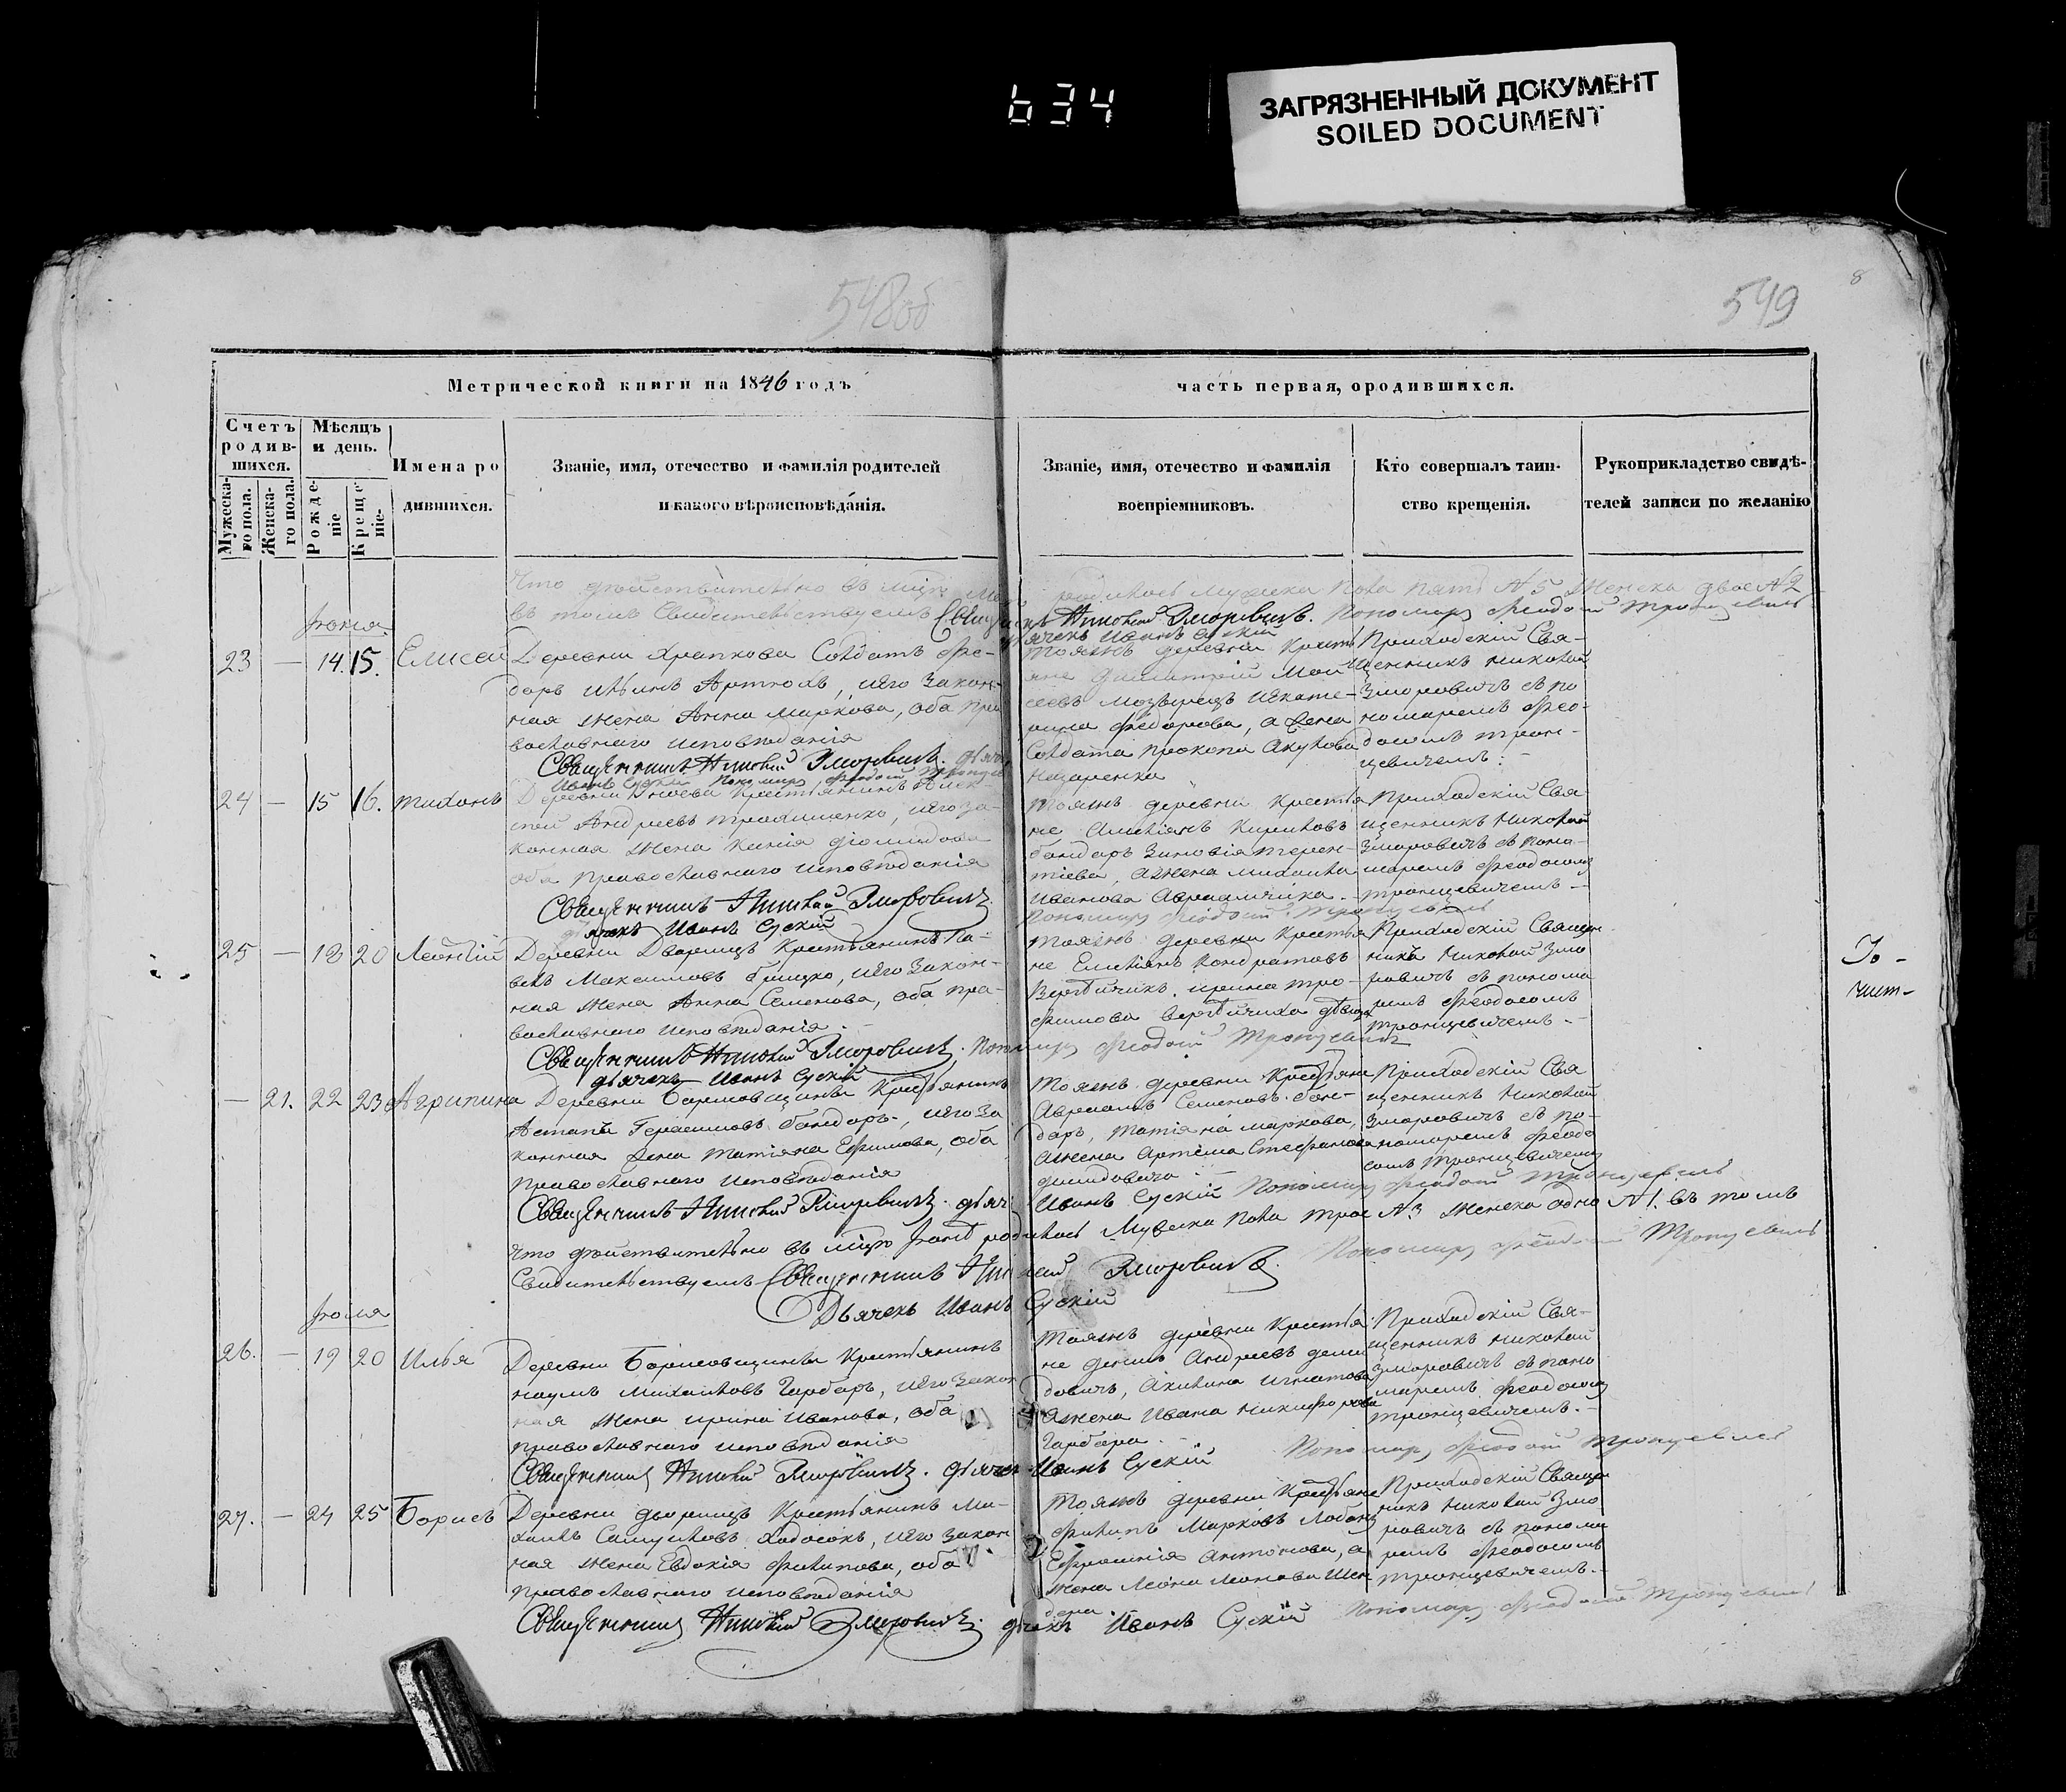 634
ЗАГРЯЗНЕННЫЙ ДОКУМЕНТ
SOILED DOCUMENT
548об
549
8
Метрической книги на 1846 годъ
часть первая, ородившихся.
Счетъ родив-шихся.
Мужеска-го пола.
Женска-го пола.
Мѣсяцъ и день.
Рожде-ніе
Креще-ніе.
Имена ро
дившихся.
Званіе, имя, отечество и фамилія родителей
и какого вѣроисповѣданія.
Званіе, имя, отечество и фамилія
воспріемниковъ.
Кто совершалъ таин-
ство крещенія.
Рукоприкладство свидѣ-
телей записи по желанію
Что действительно въ родилось мужеска пола пять №5 женска двое №2
въ томъ свидетельствуемъ Священникъ Николай Зморовичъ. Пономарь Феодосій Тронцевичъ
Дьячекъ Иванъ Сускій
Іюня
23 — 14. 15. Елисей
Деревни Храпкова Солдатъ Фе-
доръ Ильинъ его закон-
ная жена Анна Маркова, оба пра
вославнаго исповѣданія
Тояжъ деревни Крестья
яне Димитрій Мои
сеевъ Мозырецъ
Федорова, жена
Солдата Прокопа
Назаренка
Приходскій Свя-
щенникъ Николай
Зморовичъ съ по
номаремъ Фео-
досіемъ Трон-
цевичемъ.
Священникъ Николай Зморовичъ. Дьяч
Иванъ Сускій Пономарь Феодосій Тронцевичъ
24 — 15 16. Тихонъ
Деревни Крестьянинъ Алек-
сей Андреевъ его за-
конная жена Ксенія
оба православнаго исповѣданія
Тояжъ деревни Крестья
не Емельянъ Кириловъ
бондарь Зиновія Терен-
тіева, жена Михаила
Иванова
Приходскій Свя-
щенникъ Николай
Зморовичъ съ поно-
маремъ Феодосіемъ
Тронцевичемъ —
Священникъ Николай Зморовичъ
Пономарь Феодосій Тронцевичъ
дьячекъ Иванъ Сускій
25 — 18 20 Леонтій
Деревни Дворищъ Крестьянинъ Па-
велъ Максимовъ его закон-
ная жена Анна Семенова, оба пра-
вославнаго исповѣданія.
Тояжъ деревни Крестья
не Емельянъ Кондратовъ
Ирина Тро-
фимова
Приходскій Священ-
никъ Николай Змо
ровичъ съ понома
ремъ Феодосіемъ
Тронцевичемъ —
Священникъ Николай Зморовичъ. Пономарь Феодосій Тронцевичъ
дьячекъ Иванъ Сускій
— 21. 22 23 Агрипина
Деревни Борисовщины Крестьянинъ
Герасимовъ бондарь, его за
конная жена Татіяна Ефимова, оба
православнаго исповѣданія
Тояжъ деревни Крестьяне
Авраамъ Семеновъ бон-
дарь, Татіяна Маркова,
жена Артема Стефанова
Приходскій Свя
щенникъ Николай
Зморовичъ съ по-
номаремъ Феодо
сіемъ Тронцевичемъ
Священникъ Николай Зморовичъ. дьяч Иванъ Сускій Пономарь Феодосій Тронцевичъ
Что действительно въ родилось Мужеска пола трое №3 женска одно №1. въ томъ
Свидетельствуемъ Священникъ Николай Зморовичъ. Пономарь Феодосій Тронцевичъ
Дьячекъ Иванъ Сускій
Іюля
26. — 19 20 Илья
Деревни Борисовщины Крестьянинъ
Наумъ Михайловъ Гарбаръ, его закон
ная жена Ирина Иванова, оба
православнаго исповѣданія
Тояжъ деревни Крестья
не Андреевъ деми
довичъ, Акилина Игнатова
жена Ивана Никифорова
Гарбара.
Приходскій Свя-
щенникъ Николай
Зморовичъ съ поно
маремъ Феодосіемъ
Тронцевичемъ.
Священникъ Николай Зморовичъ. дьячек Иванъ Сускій Пономарь Феодосій Тронцевичъ
27. — 24 25 Борисъ
Деревни Дворищъ Крестьянинъ Ми-
хаилъ Самуиловъ Ходосокъ, его закон
ная жена Евдокія Филипова, оба
православнаго исповѣданія
Тояжъ деревни Крестьяне
Филипъ Марковъ
Ефросинія Антонова,
жена Леона Леонова
Приходскій Священ
никъ Николай Змо
ровичъ съ понома
ремъ Феодосіемъ
Тронцевичемъ.
Священникъ Николай Зморовичъ. дьячекъ Иванъ Сускій Пономарь Феодосій Тронцевичъ